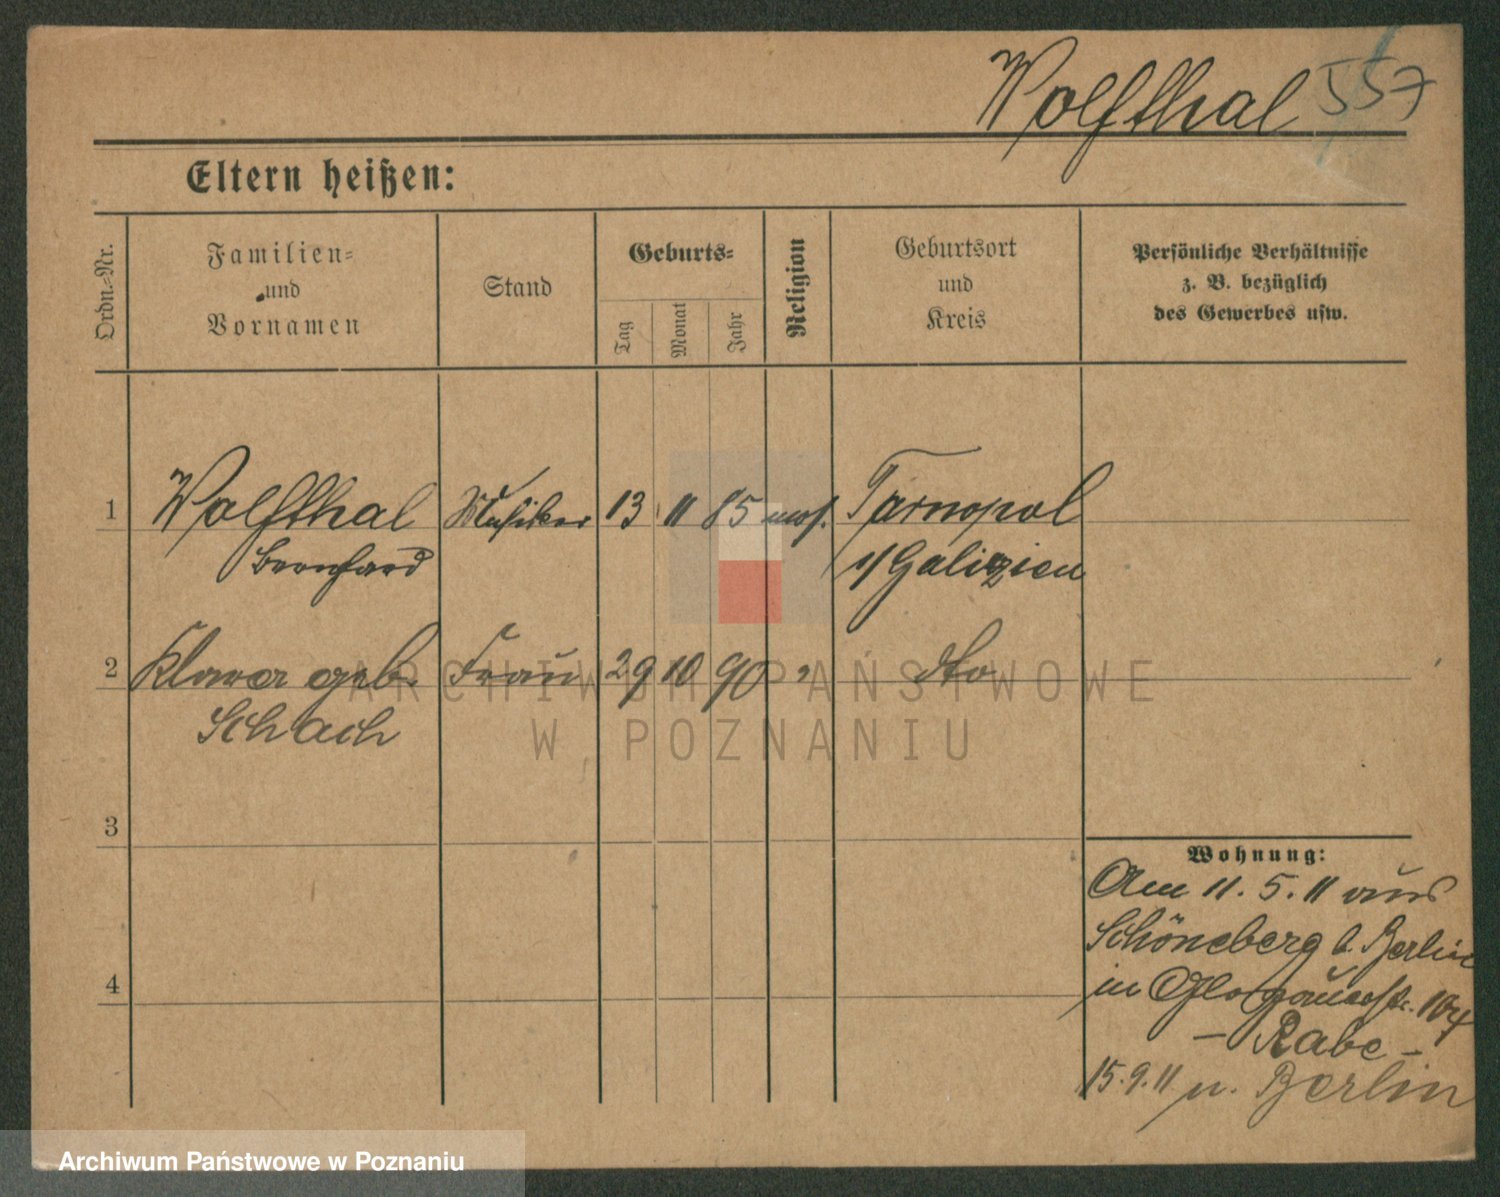 Wolfthal 557
Eltern heißen:
Ordn.-Nr.
Familien-
und
Vornamen
Stand
Geburts-
Tag
Monat
Jahr
Religion
Geburtsort
und
Kreis
Persönliche Verhältnisse
z. B. bezüglich
des Gewerbes usw.
1 Wolfthal Musiker 13 11 85 mos. Tarnopol
Bernhard i/Galizien
2 Klara geb. Frau 29 10 90 " dto
Schach
3
4
Wohnung:
Am 11. 5. 11 aus
Schöneberg b. Berlin
in Glogauerstr. 104
- Rabe -
15. 9. 11 n. Berlin
ARCHIWUM PAŃSTWOWE
W POZNANIU
Archiwum Państwowe w Poznaniu